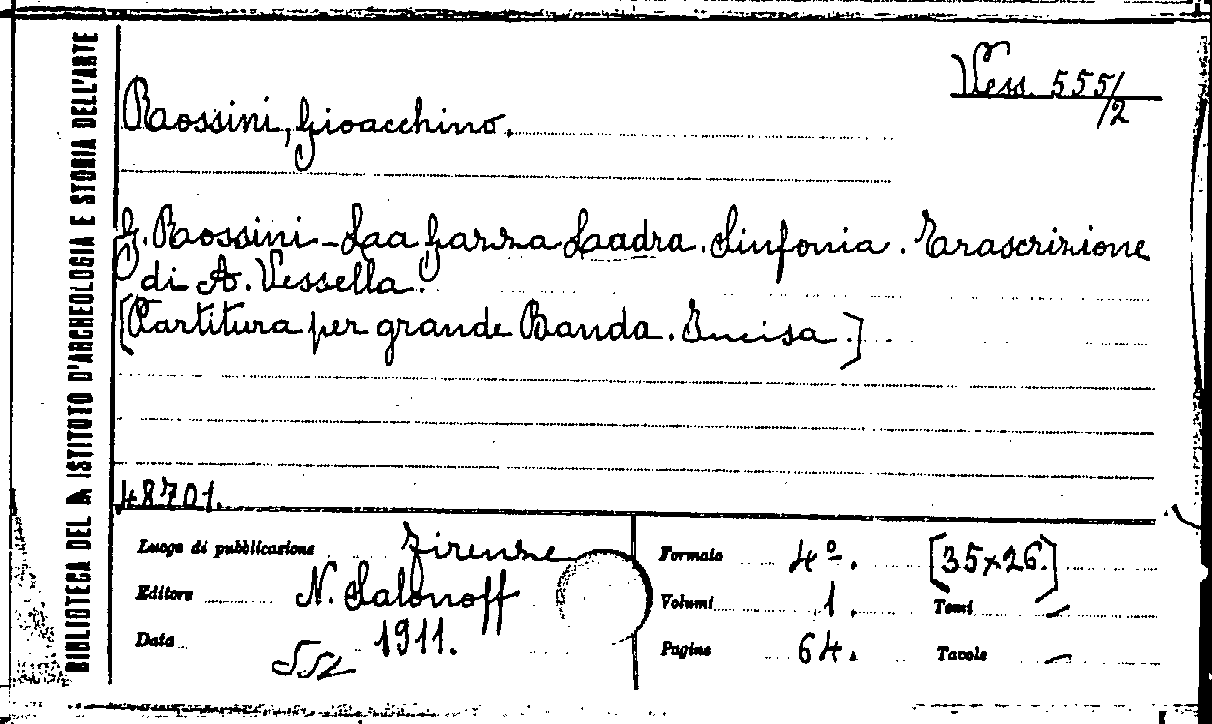 BIBLIOTECA DEL R ISTITUTO D'ARCHEOLOGIA E STORIA DELL'ARTE
Vess. 555/2
Rossini, Gioacchino.
G. Rossini - La Gazza Ladra. Sinfonia. Trascrizione
di A. Vessella.
[Partitura per grande Banda. Incisa.]
48701.
Luogo di pubblicazione Firenze
Editore N. Salonoff
Data 1911.
Formato 4º. [35x26.]
Volumi 1. Tomi —
Pagine 64. Tavole —